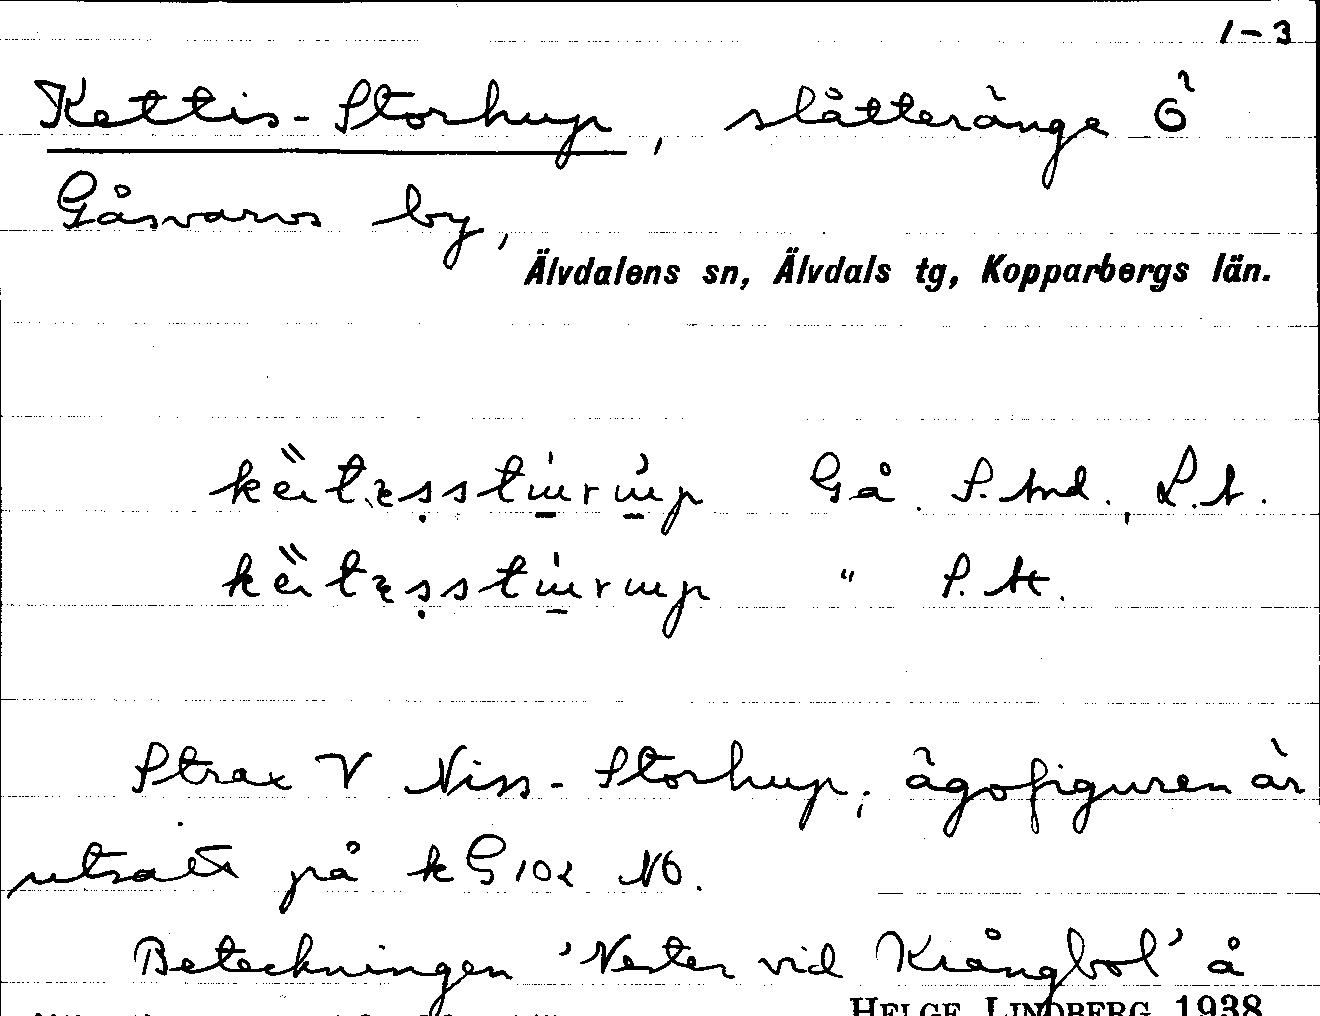 1-3
Kettis-Storhup, slåtteränge Ö
Gåsvarvs by,
Älvdalens sn, Älvdals tg, Kopparbergs län.
Gå. S.And., L.A.
" S.H.
Strax V Niss-Storhup; ägofiguren är
utsatt på k G 102 NÖ.
Beteckningen 'Nester vid Krångbol' å
HELGE LINDBERG 1938